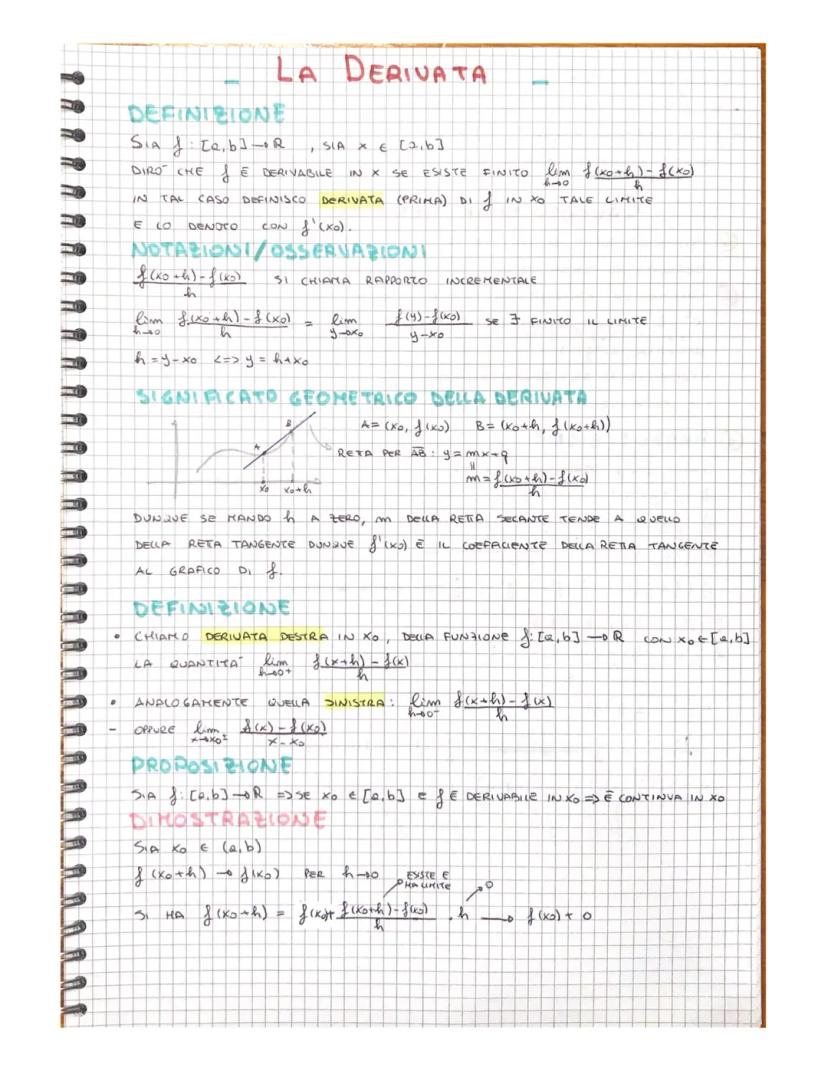 LA DERIVATA
DEFINIZIONE
SIA f: [a,b] → R , SIA x ∈ [a,b]
DIRO' CHE f È DERIVABILE IN X SE ESISTE FINITO lim h→0 f(x0+h) - f(x0) / h
IN TAL CASO DEFINISCO DERIVATA (PRIMA) DI f IN X0 TALE LIMITE
E LO DENOTO CON f'(x0).
NOTAZIONI/OSSERVAZIONI
f(x0+h) - f(x0) / h SI CHIAMA RAPPORTO INCREMENTALE
lim h→0 f(x0+h) - f(x0) / h = lim y→x0 f(y) - f(x0) / y-x0 SE ∃ FINITO IL LIMITE
h = y-x0 <=> y = h+x0
SIGNIFICATO GEOMETRICO DELLA DERIVATA
A = (x0, f(x0) B = (x0+h, f(x0+h))
B
A
RETA PER AB: y = mx+q
=
m = f(x0+h) - f(x0) / h
x0 x0+h
DUNQUE SE MANDO h A ZERO, m DELLA RETTA SECANTE TENDE A QUELLO
DELLA RETA TANGENTE DUNQUE f'(x0) È IL COEFFACIENTE DELLA RETTA TANGENTE
AL GRAFICO DI f.
DEFINIZIONE
• CHIAMO DERIVATA DESTRA IN X0, DELLA FUNZIONE f: [a,b] → R CON x0 ∈ [a,b]
LA QUANTITA' lim h→0+ f(x+h) - f(x) / h
• ANALOGAMENTE QUELLA SINISTRA: lim h→0- f(x+h) - f(x) / h
- OPPURE lim x→x0± f(x) - f(x0) / x-x0
PROPOSIZIONE
SIA f: [a,b] → R => SE x0 ∈ [a,b] e f È DERIVABILE IN X0 => È CONTINUA IN X0
DIMOSTRAZIONE
SIA X0 ∈ (a,b)
f(x0+h) → f(x0) PER h→0
ESISTE E HA LIMITE
0
SI HA f(x0+h) = f(x0)+ f(x0+h) - f(x0) / h · h → f(x0) + 0